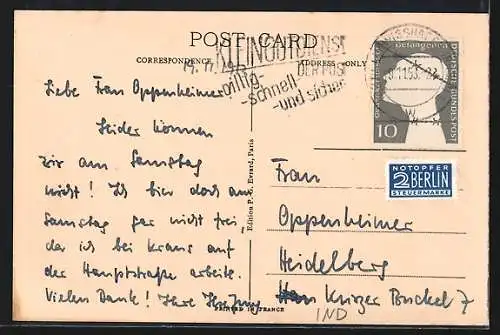 POST CARD
CORRESPONDENCE
ADDRESS ONLY
KLEINGUTDIENST
DER POST
billig
-schnell
-und sicher
10.11.53
DEUTSCHE BUNDESPOST
10
NOTOPFER
2 BERLIN
STEUERMARKE
Liebe Frau Oppenheimer
Leider können
wir am Samstag
nicht! Ich bin doch am
Samstag gar nicht frei
da ich bei Kraus auf
der Hauptstraße arbeite.
Vielen Dank! Ihre
Edition P. C. Evrard, Paris
Frau
Oppenheimer
Heidelberg
Buckel 7
IND
PRINTED IN FRANCE